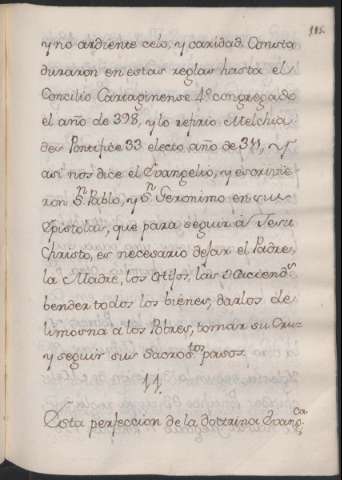 115.
y no ardiente celo, y caridad. Consta
duraron en estas reglas hasta el
Concilio Cartaginense 4º congregado
el año de 398, y lo refirio Melchia
des Pontifice 33 electo año de 311, y
asi nos dice el Evangelio, y escrivie
ron Sn. Pablo, y Sn. Geronimo en sus
Epistolas, que para seguir à Jesu
Christo, es necesario dejar el Padre,
la Madre, los Hijos, las Haciends
bender todos los bienes, darlos de
limosna à los Pobres, tomar su Cruz
y seguir sus Sacrostos pasos.
11.
Esta perfeccion de la doctrina Evangca